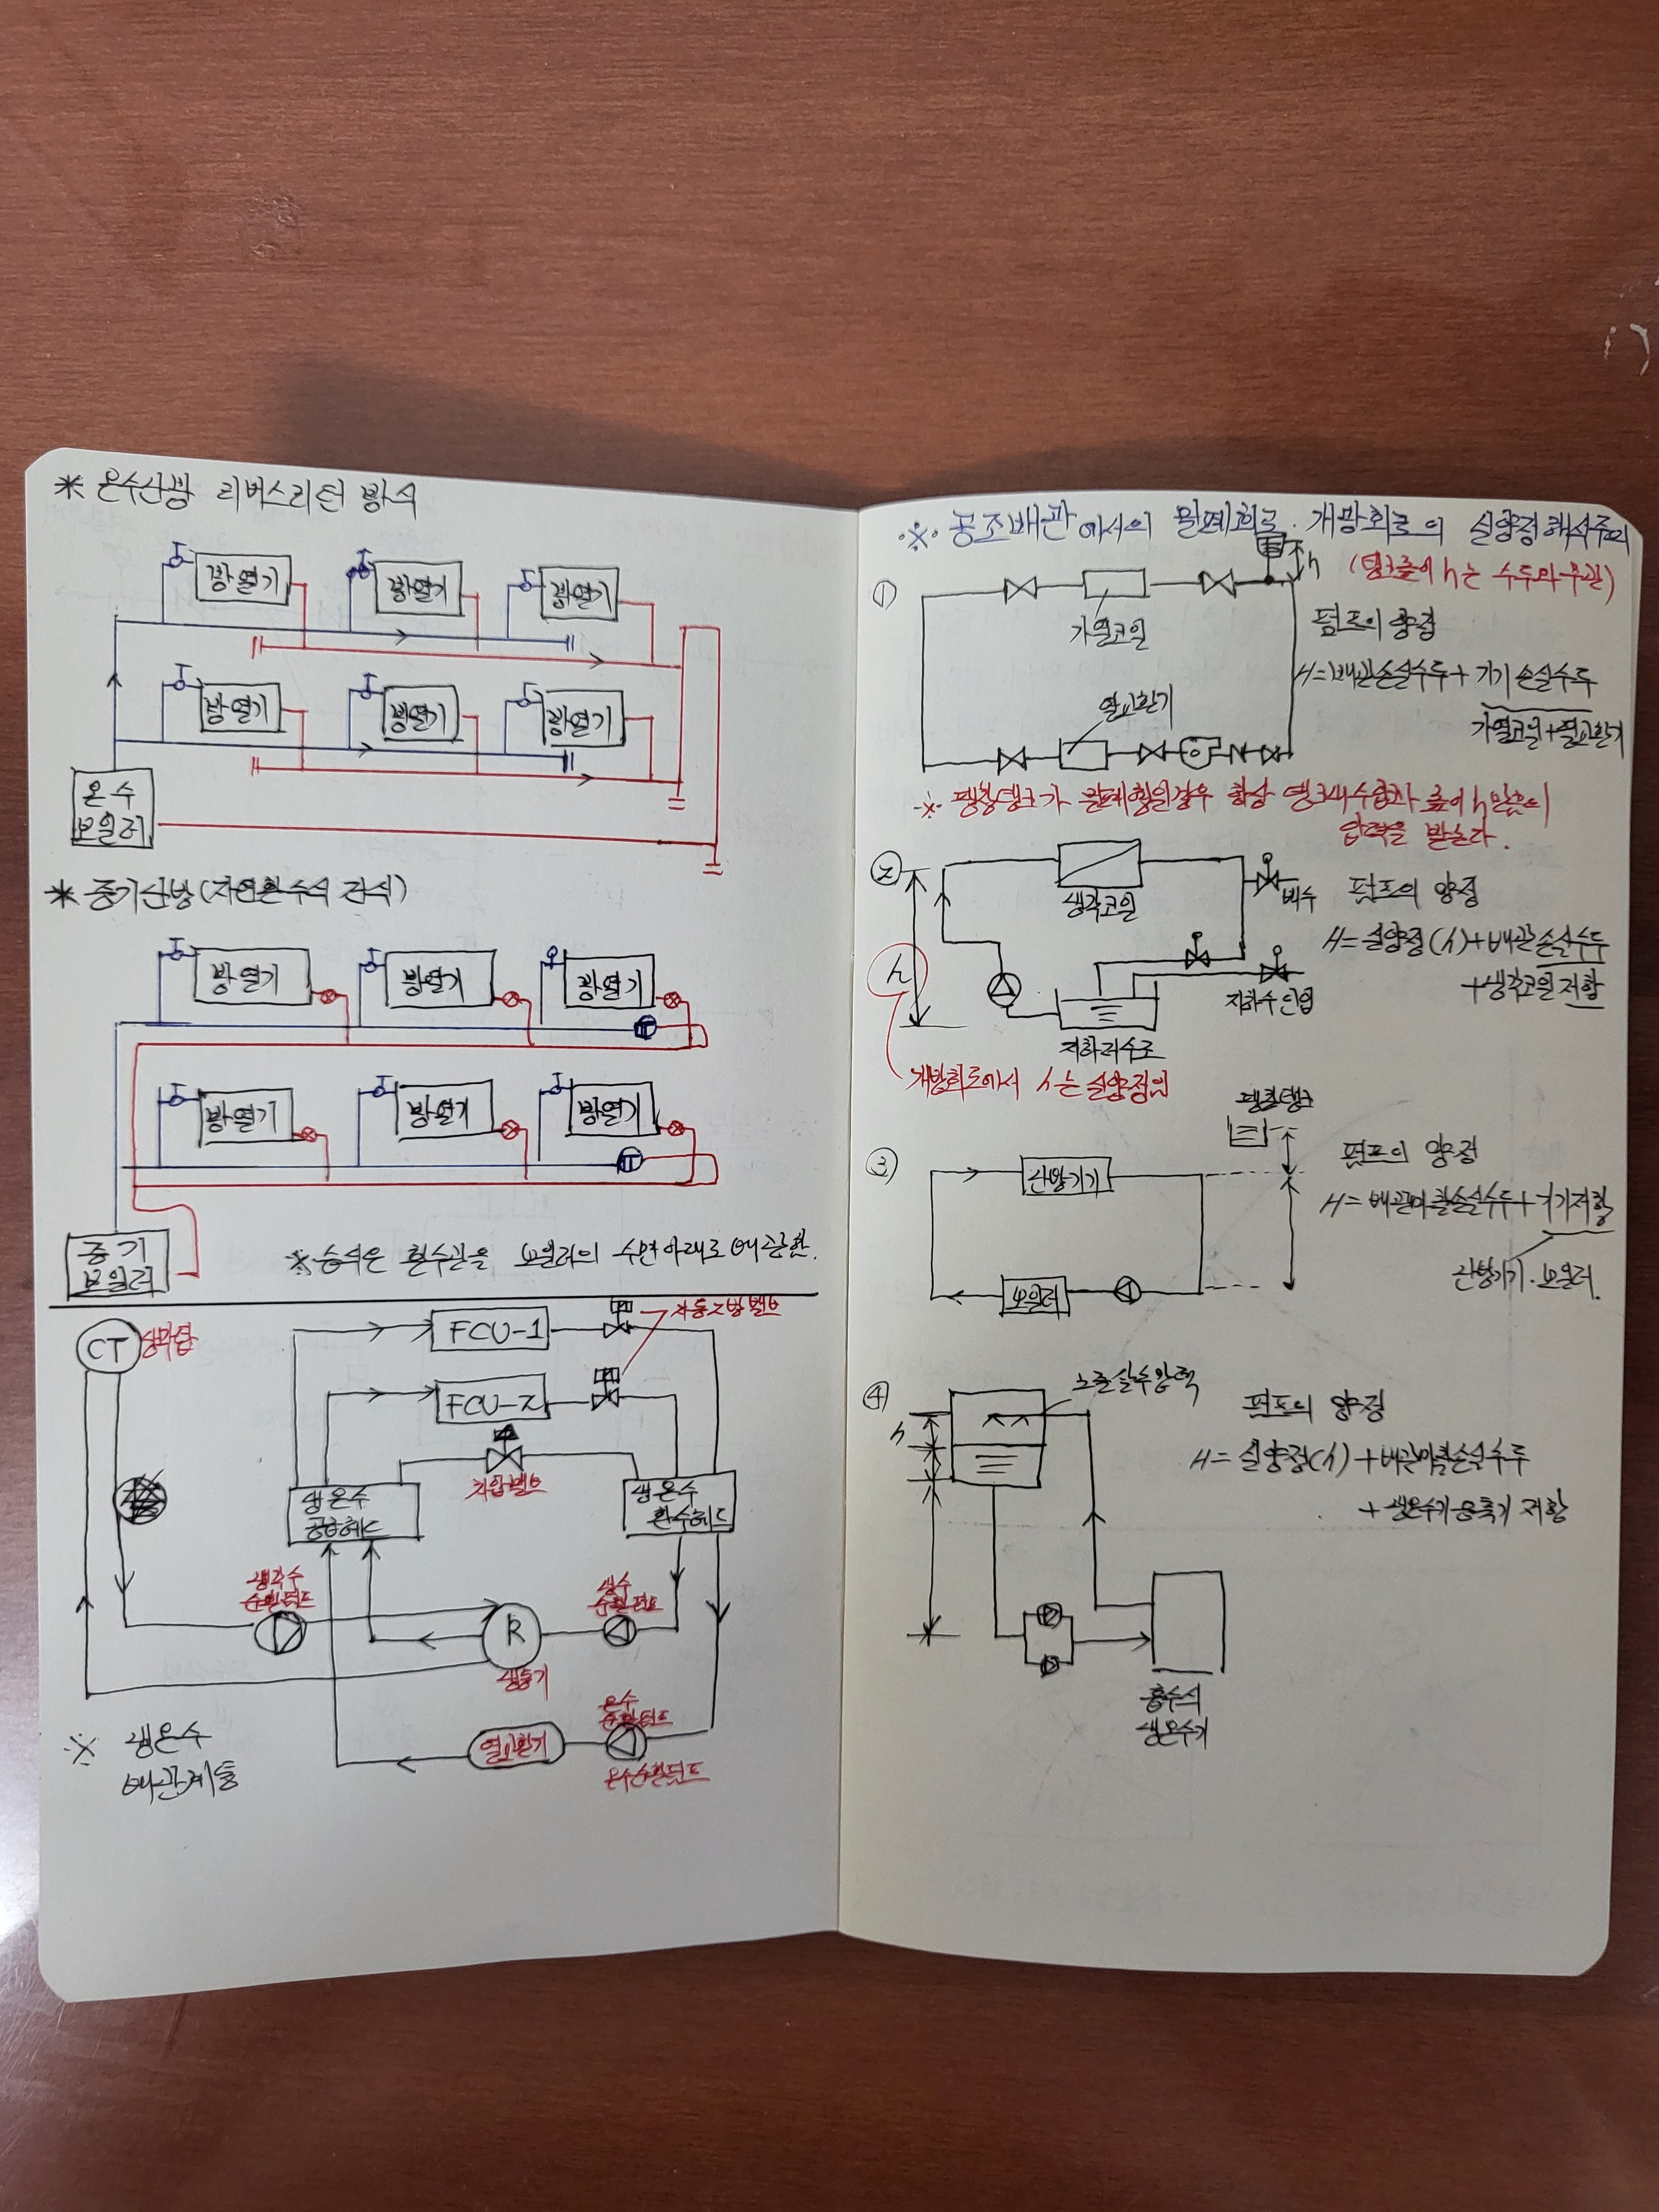 * 온수난방 리버스리턴 방식
방열기
방열기
방열기
방열기
방열기
방열기
온수
보일러
* 증기난방 (자연환수식 건식)
방열기
방열기
방열기
방열기
방열기
방열기
증기
보일러
※ 습식은 환수관을 보일러의 수면아래로 배관함.
CT
냉각탑
FCU-1
자동조방밸브
FCU-2
차압밸브
냉온수
공급헤드
냉온수
환수헤드
냉각수
순환펌프
냉수
순환펌프
R
냉동기
온수
순환펌프
열교환기
온수순환펌프
※ 냉온수
배관계통
※ 공조배관에서의 밀폐회로. 개방회로의 실양정 해석주의
① h (탱크높이 h는 수두와 무관)
가열코일
펌프의 양정
H=배관손실수두+기기손실수두
가열코일+열교환기
열교환기
※ 팽창탱크가 밀폐형일경우 항상 탱크내수압과 높이 h만큼의
압력을 받는다.
②
냉각코일
배수
펌프의 양정
H=실양정(h)+배관손실수두
+냉각코일저항
h
지하수인입
지하저수조
개방회로에서 h는 실양정임
팽창탱크
③
난방기기
펌프의 양정
H=배관마찰손실수두+기기저항
난방기기.보일러.
보일러
④
노즐살수압력
h
펌프의 양정
H=실양정(h)+배관마찰손실수두
+냉온수기응축기저항
흡수식
냉온수기